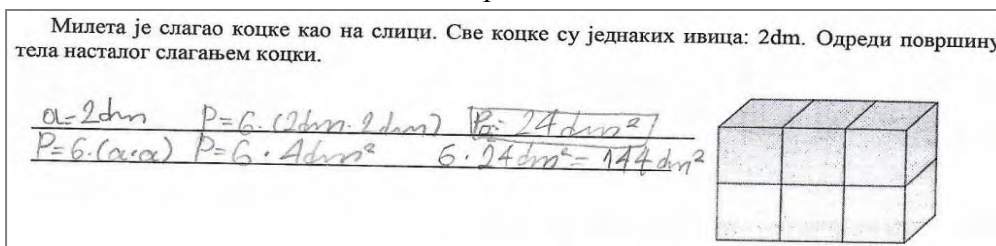 Милета је слагао коцке као на слици. Све коцке су једнаких ивица: 2dm. Одреди површину
тела насталог слагањем коцки.
a=2dm P=6·(2dm·2dm) P=24dm²
P=6·(a·a) P=6·4dm² 6·24dm²=144dm²